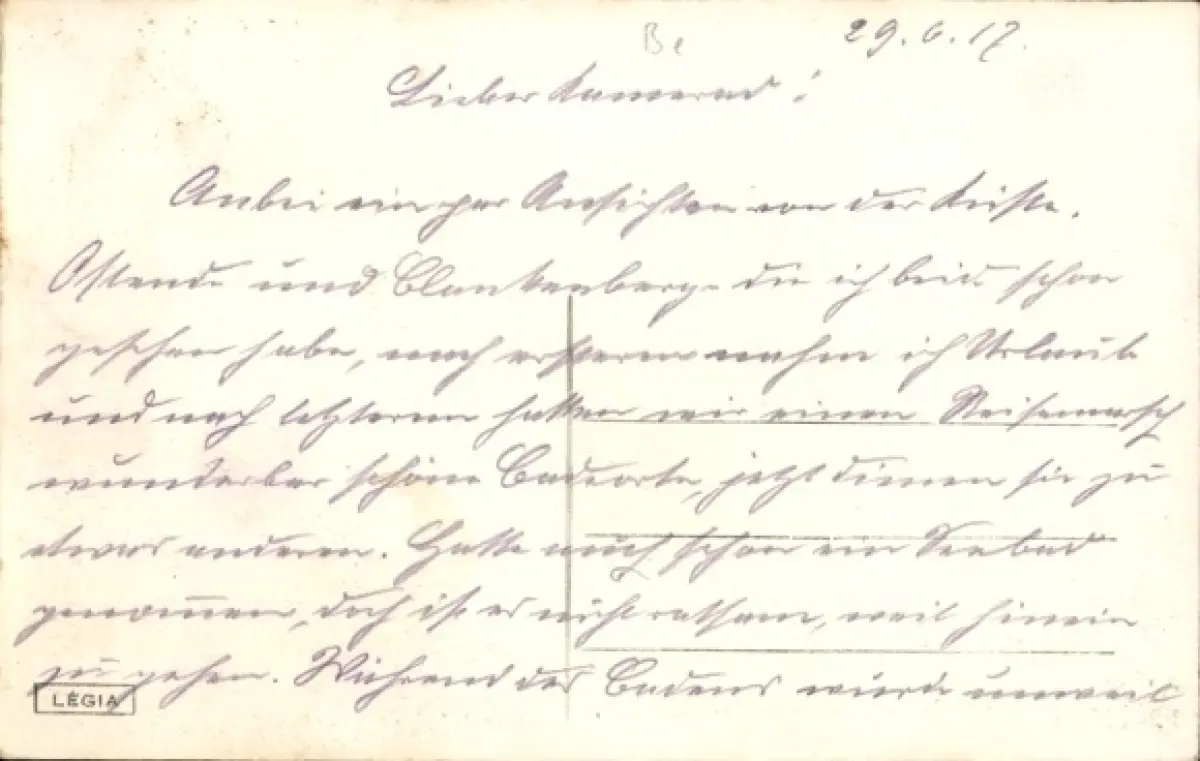 Be
29.6.17.
Lieber Kamerad!
Anbei ein par Ansichten von der Küste.
Ostende und Blankenberge die ich beide schon
gesehen habe, nach ersterem nahm ich Urlaub
und nach letzterem hatten wir einen Reisemarsch
wunderbar schöne Badeorte, jetzt dienen sie zu
etwas anderem. Hatte auch schon ein Seebad
genommen, doch ist es nicht ratsam, weit hinein
zu gehen. Während des Badens wurde unweit
LÉGIA